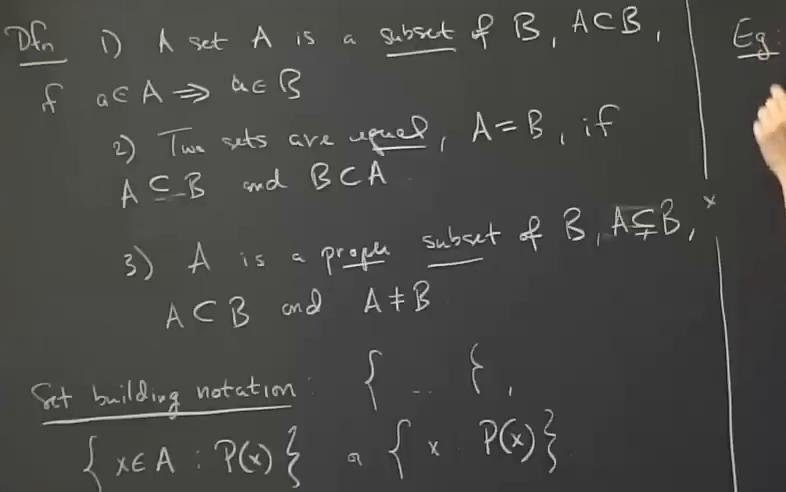 Dfn 1) A set A is a subset of B, A⊂B,
if a∈A ⇒ a∈B
2) Two sets are equal, A=B, if
A⊂B and B⊂A
3) A is a proper subset of B, A⊊B,
A⊂B and A≠B
Set building notation: { .. },
{x∈A : P(x)} or {x P(x)}
Eg: